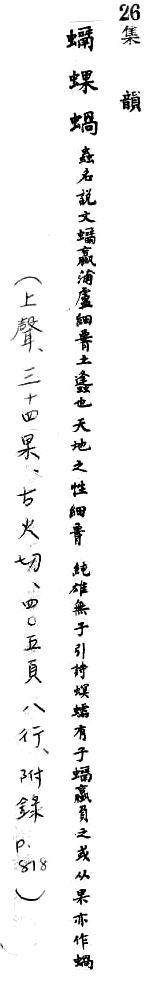 26 集韻
蠣蜾蝸 蟲名說文蠣蠃蒲盧細𦝫土蠭也天地之性細𦝫純雄無子引詩螟蠕有子蠣蠃負之或从果亦作蝸
(上聲、三十四果、古火切、四〇五頁 八行、附錄 P. 818)